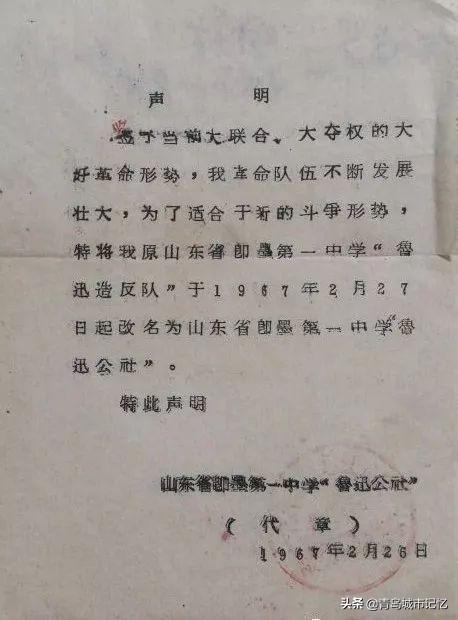 声 明
鉴于当前大联合、大夺权的大
好革命形势，我革命队伍不断发展
壮大，为了适合于新的斗争形势，
特将我原山东省即墨第一中学“鲁
迅造反队”于1967年2月27
日起改名为山东省即墨第一中学“鲁
迅公社”。
特此声明
山东省即墨第一中学“鲁迅公社”
（代章）
1967年2月26日
头条 @青岛城市记忆